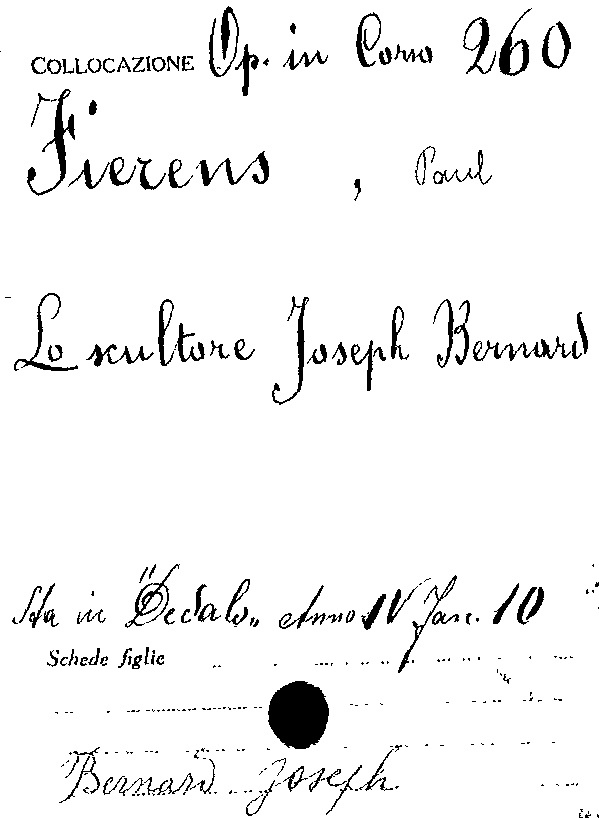 COLLOCAZIONE Op. in Corso 260
Fierens, Paul
Lo scultore Joseph Bernard
Sta in "Dedalo" Anno IV Fasc. 10
Schede figlie
Bernard Joseph